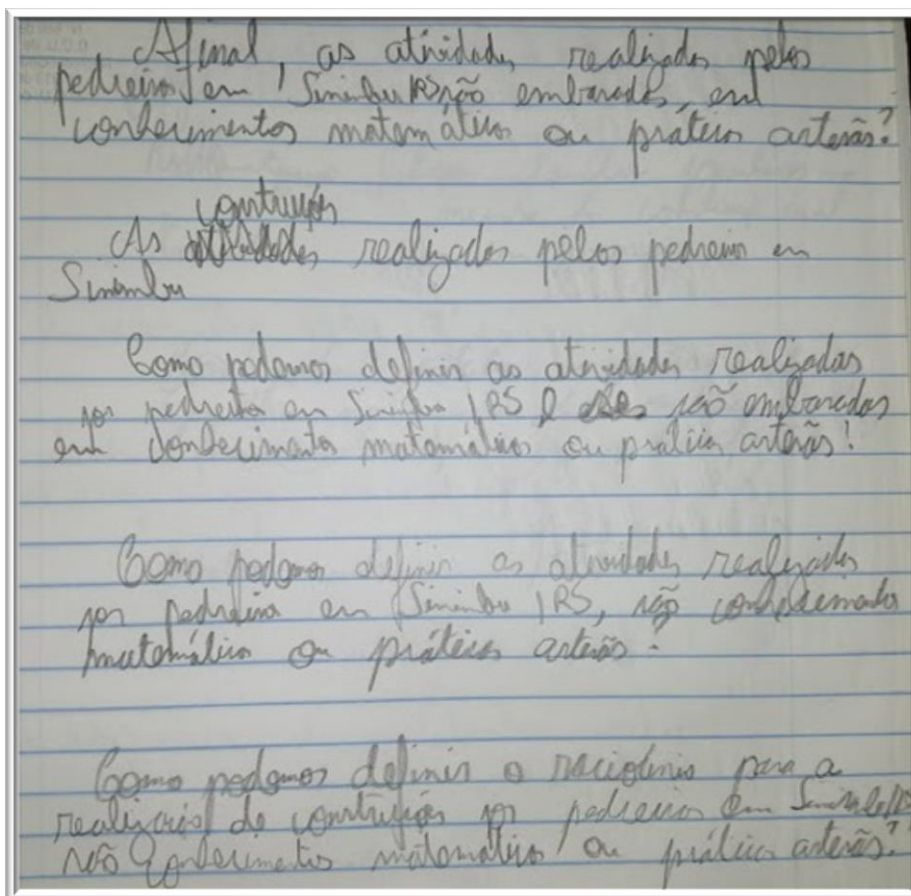 Afinal, as atividades realizadas pelos
pedreiros em Sinimbu/RS são embasados em
conhecimentos matemáticos ou práticas artesãs?
construções
As realizadas pelos pedreiros em
Sinimbu
Como podemos definir as atividades realizadas
por pedreiros em Sinimbu/RS são embasados
em conhecimentos matemáticos ou práticas artesãs?
Como podemos definir as atividades realizadas
por pedreiros em Sinimbu/RS, são conhecimentos
matemáticos ou práticas artesãs?
Como podemos definir o raciocínio para a
realização de construções por pedreiros em Sinimbu/RS
são conhecimentos matemáticos ou práticas artesãs?